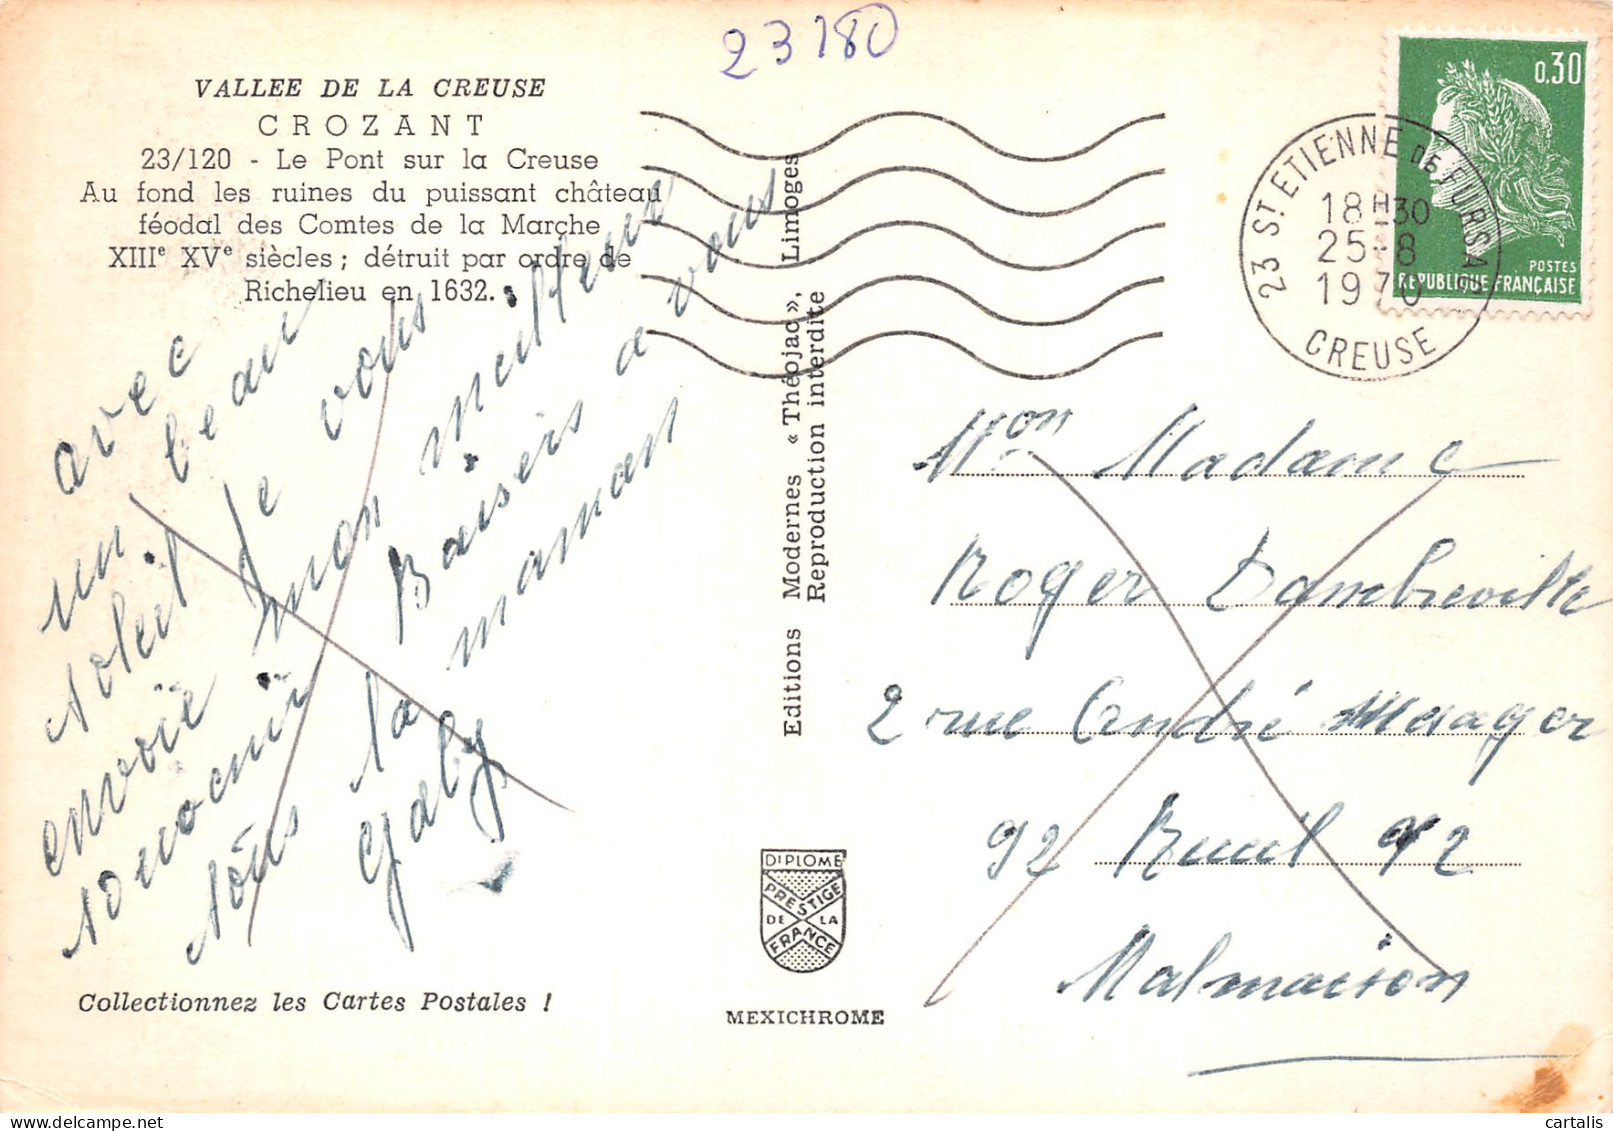 23180
VALLEE DE LA CREUSE
CROZANT
23/120 - Le Pont sur la Creuse
Au fond les ruines du puissant château
féodal des Comtes de la Marche
XIIIe XVe siècles ; détruit par ordre de
Richelieu en 1632.
avec
un beau
soleil Je vous
envoie mon meilleur
souvenir Baisers a vous
tous la maman
Gaby
Collectionnez les Cartes Postales !
Editions Modernes « Théojac », Limoges
Reproduction interdite
DIPLOME
PRESTIGE
DE LA
FRANCE
MEXICHROME
23 ST ETIENNE DE FURSAC
18H30
25-8
1970
CREUSE
0,30
POSTES
REPUBLIQUE FRANÇAISE
Mon Madame
Roger Dambreville
2 rue André Messager
92 Rueil 92
Malmaison
cartalis